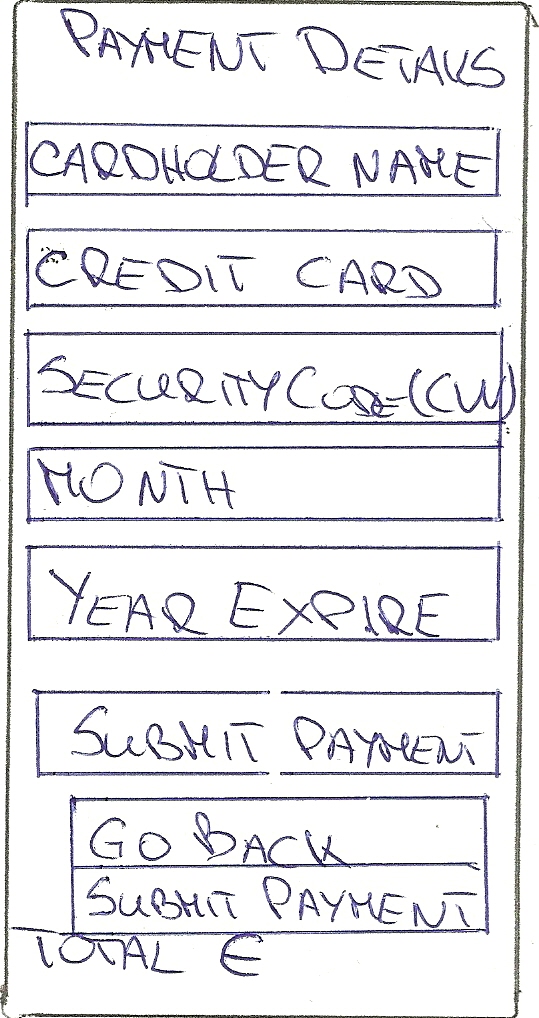 PAYMENT DETAILS
CARDHOLDER NAME
CREDIT CARD
SECURITY CODE (CVV)
MONTH
YEAR EXPIRE
SUBMIT PAYMENT
GO BACK
SUBMIT PAYMENT
TOTAL €